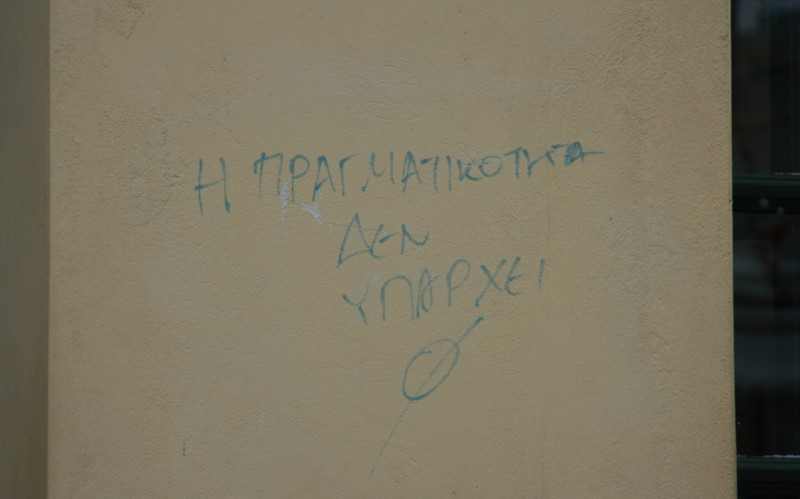 Η ΠΡΑΓΜΑΤΙΚΟΤΗΤΑ
ΔΕΝ
ΥΠΑΡΧΕΙ